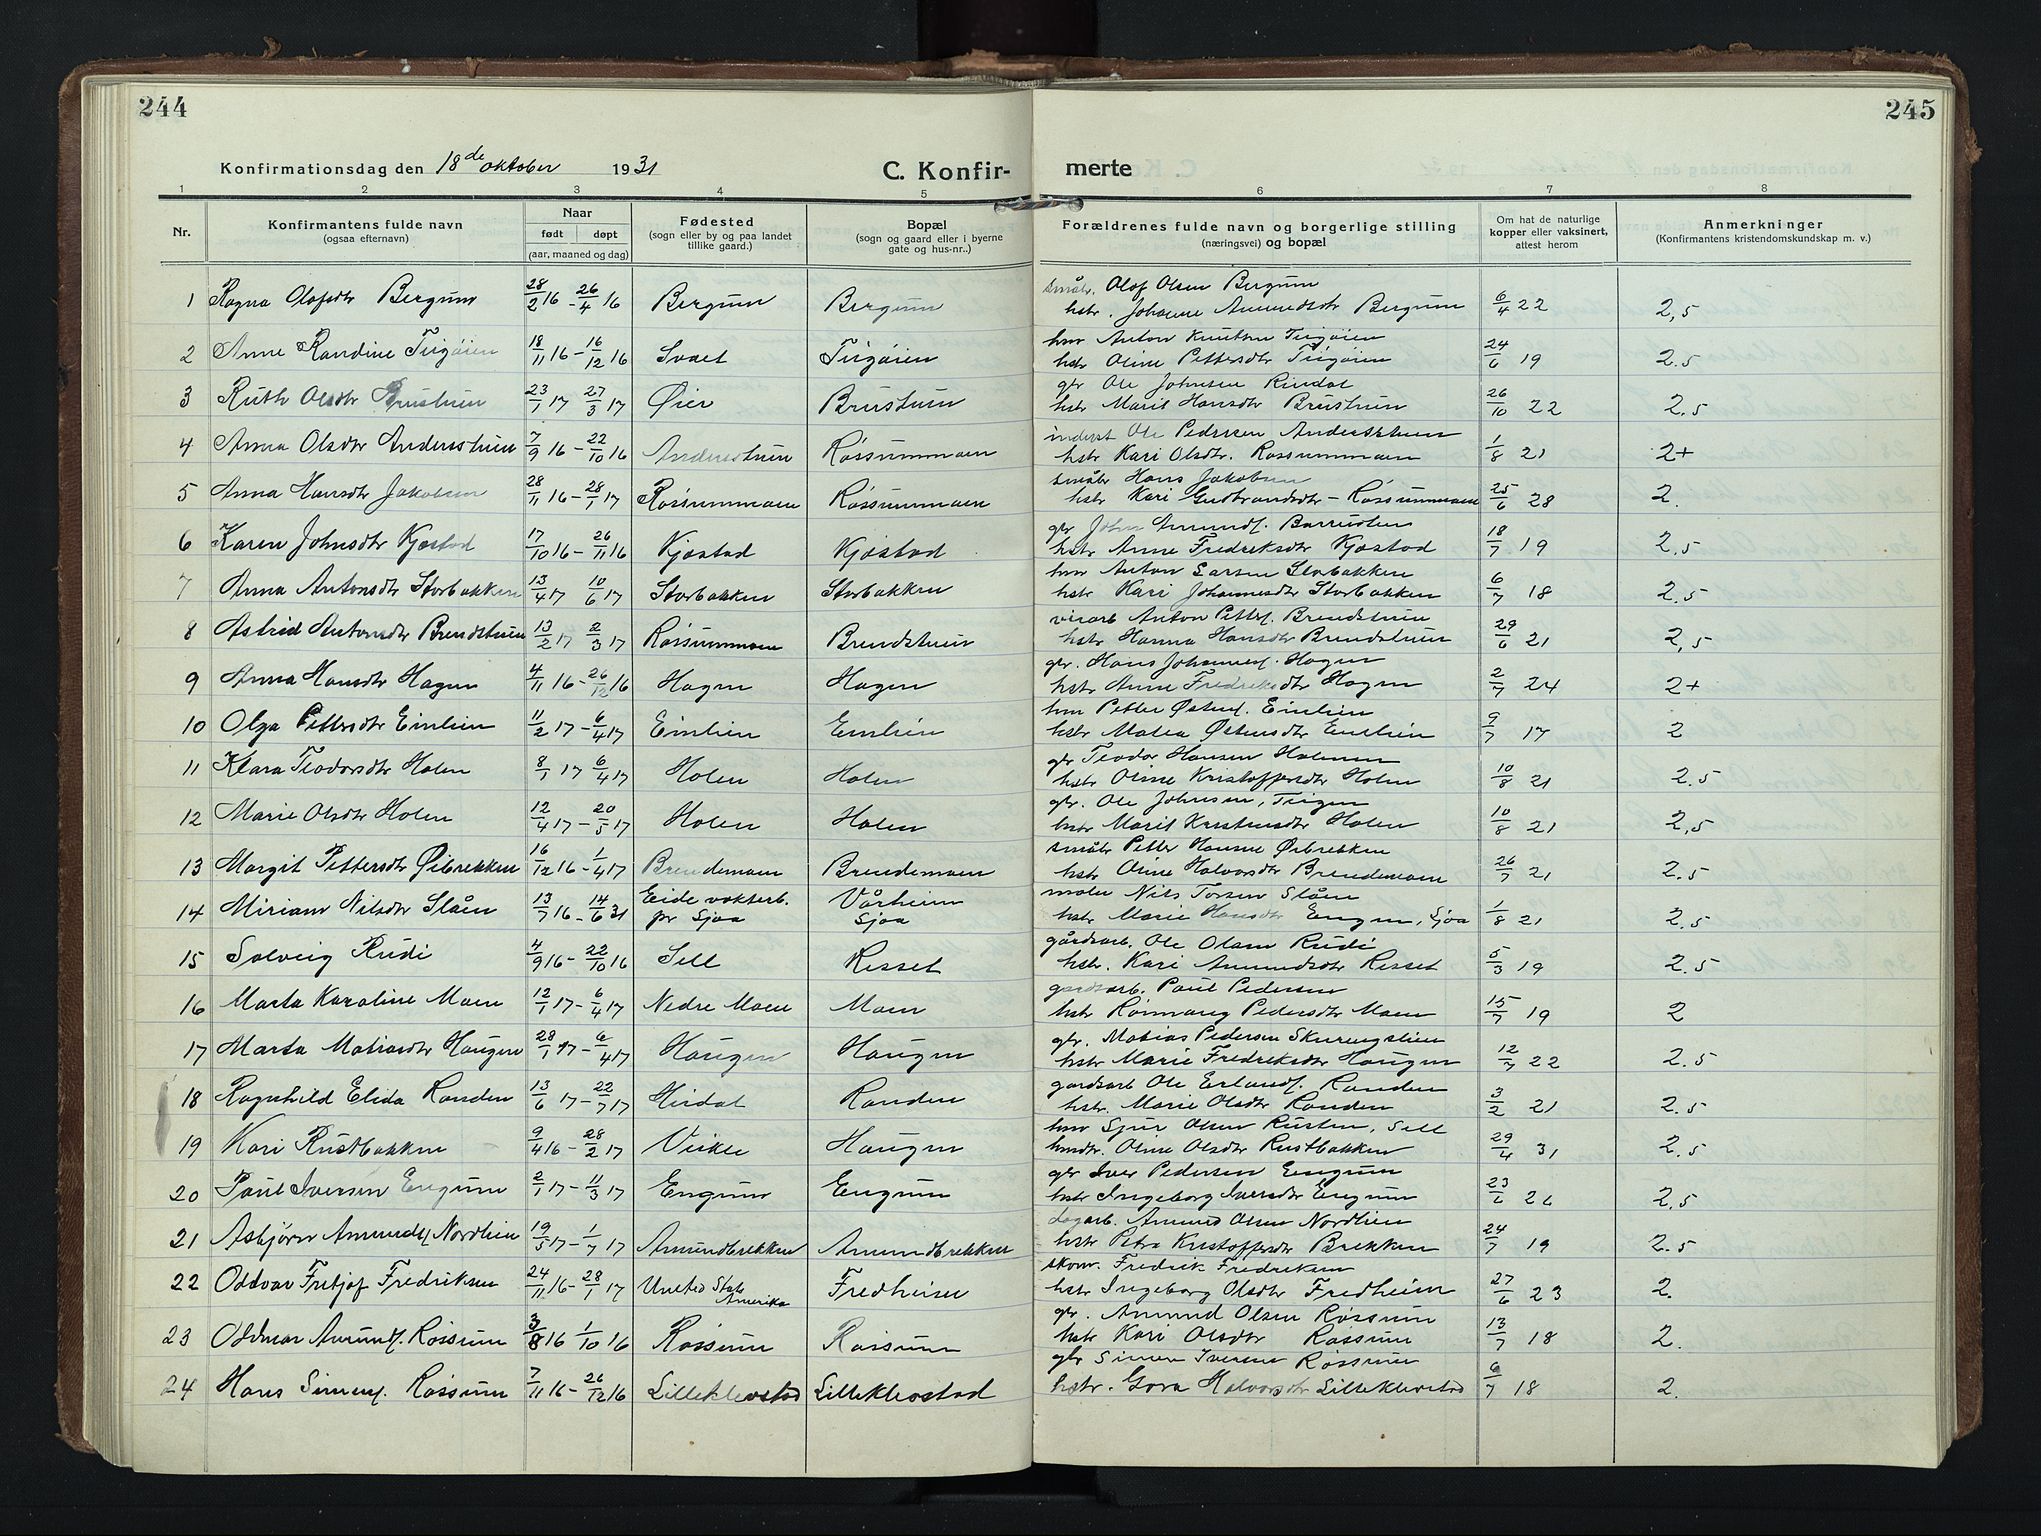 244
245
Konfirmationsdag den 18de oktober 1931
C. Konfir-
merte
1 2 3 4 5 6 7 8
Nr.
Konfirmantens fulde navn
(ogsaa efternavn)
Naar
født døpt
(aar, maaned og dag)
Fødested
(sogn eller by og paa landet
tillike gaard.)
Bopæl
(sogn og gaard eller i byerne
gate og hus-nr..)
Forældrenes fulde navn og borgerlige stilling
(næringsvei) og bopæl
Om hat de naturlige
kopper eller vaksinert,
attest herom
Anmerkninger
(Konfirmantens kristendomskundskap m. v.)
småbr. Olof Olsen Bergum
1 Ragna Olofsdtr Bergum 28/2 16 – 26/4 16 Bergum Bergum hstr. Johanne Amundsdtr Bergum 6/4 22 2,5
hmr Anton Knutsen Tirgøien
2 Anne Randine Tirgøien 18/11 16 – 16/12 16 Svael Tirgøien hstr Oline Pettersdtr Tirgøien 24/6 19 2.5
gbr Ole Johnsen Rindal
3 Ruth Olsdtr Brustuen 23/1 17 27/3 17 Øier Brustuen hstr Marit Hansdtr Brustuen 26/10 22 2.5
inderst Ole Pedersen Andersstuen
4 Anna Olsdtr Andersstuen 7/9 16 – 22/10 16 Andersstuen Røssummoen hstr Kari Olsdtr. Røssummoen 1/8 21 2+
småbr Hans Jakobsen
5 Anna Hansdtr Jakobsen 28/11 16 – 28/1 17 Røssummoen Røssummoen hstr Kari Gudbrandsdtr – Røssummoen 25/6 28 2.
gbr John Amunds. Barrusten
6 Karen Johnsdtr Kjøstad 17/10 16 – 26/11 16 Kjøstad Kjøstad hstr Anne Fredriksdtr Kjøstad 18/7 19 2.5
hmr Anton Larsen Storbakken
7 Anna Antonsdtr Storbakken 13/4 17 10/6 17 Storbakken Storbakken hstr Kari Johannesdtr Storbakken 6/7 18 2.5
veiarb Anton Petters. Brendstuen
8 Astrid Antonsdtr Brendstuen 13/2 17 2/3 17 Røssummoen Brendstuen hstr Hanna Hansdtr Brendstuen 29/6 21 2,5
gbr. Hans Johannes. Hagen
9 Anna Hansdtr Hagen 4/11 16 – 26/12 16 Hagen Hagen hstr Anne Fredriksdtr Hagen 2/7 24 2+
hmr Petter Østens. Einlien
10 Olga Pettersdtr Einlien 11/2 17 – 6/4 17 Einlien Einlien hstr Matea Østensdtr Einlien 9/7 17 2
gbr Teodor Hansen Holmen
11 Klara Teodorsdtr Holen 8/1 17 6/4 17 Holen Holen hstr Oline Kristoffersdtr Holen 10/8 21 2.5
gbr. Ole Johnsen, Tirgen
12 Marie Olsdtr Holen 12/4 17 – 20/5 17 Holen Holen hstr Marit Kristensdtr Holen 10/8 21 2,5
småbr Petter Hansen Øibrekken
13 Margit Pettersdtr Øibrekken 16/12 16 – 1/4 17 Brendemoen Brendemoen hstr Oline Halvorsdtr Brendemoen 26/7 21 2.5
maler Nils Torsen Slåen
14 Miriam Nilsdtr Slåen 13/7 16 – 14/6 31 Eide vokterb. pr Sjoa Vårheim Sjoa hstr Marie Hansdtr Engen, Sjoa 1/8 21 2.5
gårdsarb. Ole Olsen Rudi
15 Solveig Rudi 4/9 16 – 22/10 16 Sell Risset hstr. Kari Amundsdtr Risset 5/3 19 2.5
gardsarb. Paul Pedersen
16 Marta Karoline Moen 12/1 17 – 6/4 17 Nedre Moen Moen hstr Rønnaug Pedersdtr Moen 15/7 19 2
gbr. Matias Pedersen Skurengslien
17 Marta Matiasdtr Haugen 28/1 17 – 6/4 17 Haugen Haugen hstr Marie Fredriksdtr Haugen 12/7 22 2.5
gardsarb Ole Erlands. Randen
18 Ragnhild Elida Randen 13/6 17 – 22/7 17 Heidal Randen hstr. Marie Olsdtr Randen 3/2 21 2.5
hmr Sjur Olsen Rusten, Sell
19 Kari Rustbakken 9/4 16 – 28/2 17 Haugen hmdtr. Oline Olsdtr Rustbakken 29/4 31 2.5
gbr Iver Pedersen Engum
20 Paul Iversen Engum 2/1 17 – 11/3 17 Engum Engum hstr Ingeborg Iversdtr Engum 23/6 26 2,5
dagarb. Amund Olsen Nordlien
21 Asbjørn Amunds. Nordlien 19/5 17 – 1/7 17 Amundbrekken Amundbrekken hstr Petra Kristoffersdtr Brekken 24/7 19 2.5
skom. Fredrik Fredriksen
22 Oddvar Fritjof Fredriksen 24/11 16 – 28/1 17 United State Amerika Fredheim hstr Ingeborg Olsdtr Fredheim 27/6 23 2.
gbr. Amund Olsen Røssum
23 Oddmar Amunds. Røssum 3/8 16 1/10 16 Røssum Røssum hstr Kari Olsdtr Røssum 13/7 18 2.
gbr Simen Iversen Røssum
24 Hans Simens. Røssum 7/11 16 – 26/12 16 Lillekleostad Lillekleostad hstr. Gora Halvorsdtr Lillekleostad 6/7 18 2.